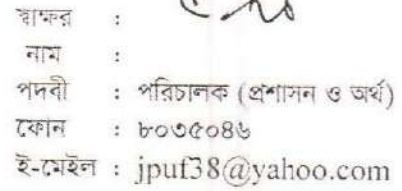 স্বাক্ষর :
নাম :
পদবী : পরিচালক (প্রশাসন ও অর্থ)
ফোন : ৮০৩৫০৪৬
ই-মেইল : jpuf38@yahoo.com